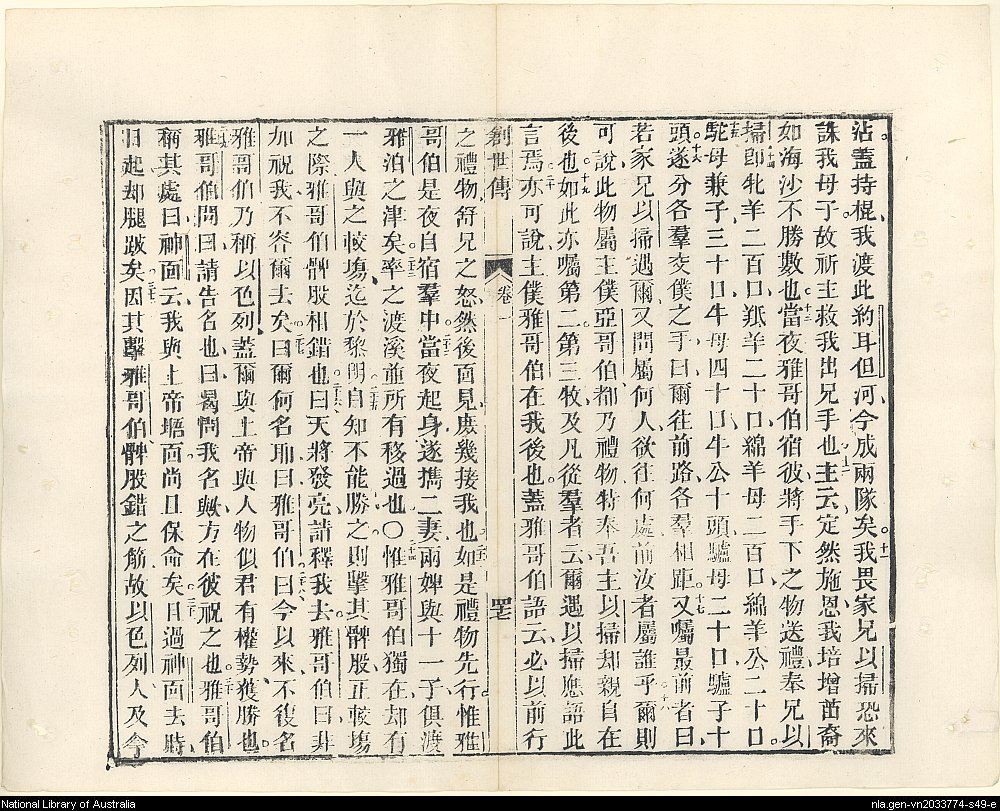 沾蓋持棍我渡此約耳但河今成兩隊矣十一我畏家兄以掃恐來
誅我母子故祈主救我出兄手也十二主云定然施恩我培增苗裔
如海沙不勝數也十三當夜雅哥伯宿彼將手下之物送禮奉兄以
掃十四卽牝羊二百口羝羊二十口綿羊母二百口綿羊公二十口
十五駝母兼子三十口牛母四十口牛公十頭驢母二十口驢子十
頭十六遂分各羣交僕之手曰爾往前路各羣相距十七又囑最前者曰
若家兄以掃遇爾又問屬何人欲往何處前汝者屬誰乎十八爾則
可說此物屬主僕亞哥伯都乃禮物特奉吾主以掃却親自在
後也十九如此亦囑第二第三牧及凡從羣者云爾遇以掃應語此
言焉二十亦可說主僕雅哥伯在我後也蓋雅哥伯語云必以前行
創世傳 卷一 四十七
之禮物舒兄之怒然後面見庶幾接我也二一如是禮物先行惟雅
哥伯是夜自宿羣中二二當夜起身遂攜二妻兩婢與十一子俱渡
雅泊之津矣二三率之渡溪並所有移過也○二四惟雅哥伯獨在却有
一人與之較塲迄於黎明二五自知不能勝之則擊其髀股正較塲
之際雅哥伯髀股相錯也二六曰天將發亮請釋我去雅哥伯曰非
加祝我不容爾去矣二七曰爾何名耶曰雅哥伯二八曰今以來不復名
雅哥伯乃稱以色列蓋爾與上帝與人物似君有權勢獲勝也
二九雅哥伯問曰請告名也曰曷問我名歟方在彼祝之也三十雅哥伯
稱其處曰神面云我與上帝晤面尚且保命矣三一日過神面去時
日起却腿跛矣三二因其擊雅哥伯髀股錯之筋故以色列人及今
National Library of Australia
nla.gen-vn2033774-s49-e